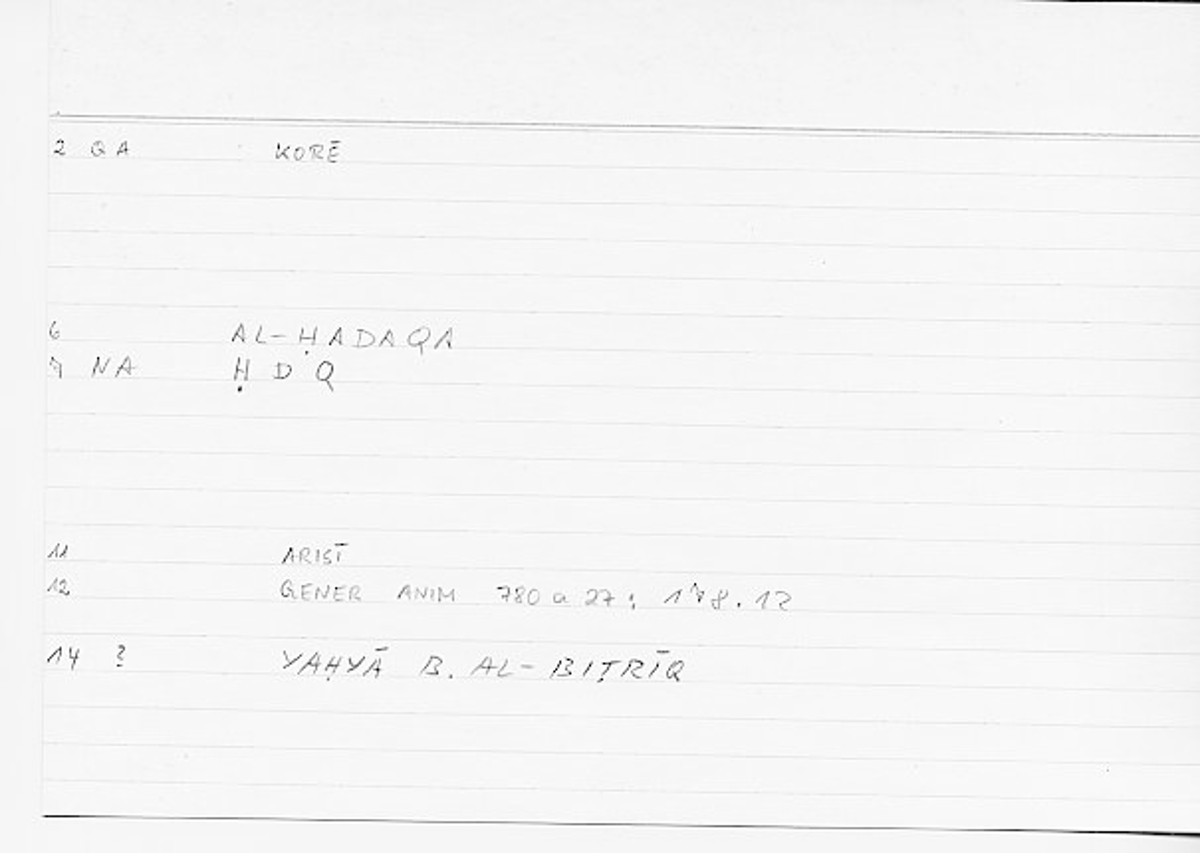 2 Q A KORĒ
6 AL-ḤADAQA
7 NA Ḥ D Q
11 ARIST
12 GENER ANIM 780 a 27: 178.12
14 ? YAḤYĀ B. AL-BIṬRĪQ